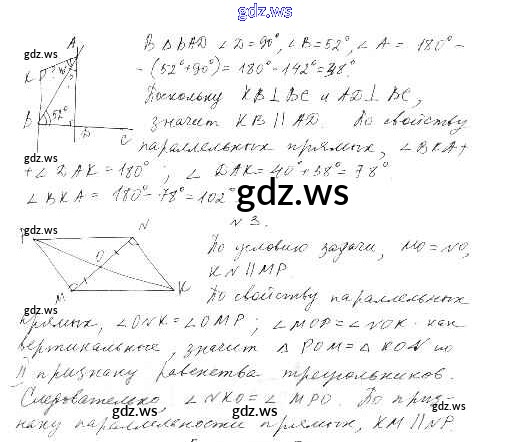 gdz.ws
В △ BAD ∠D=90°, ∠B=52°, ∠A = 180° -
- (52°+90°) = 180° - 142° = 38°.
Поскольку KB ⊥ BC и AD ⊥ BC,
значит KB ∥ AD. По свойству
параллельных прямых, ∠BKA +
+ ∠DAK = 180°; ∠DAK = 40° + 38° = 78°
∠BKA = 180° - 78° = 102°
A
K
40°
B
52°
D
C
gdz.ws
gdz.ws
gdz.ws
gdz.ws
N 3.
По условию задачи, MO = NO,
KN ∥ MP.
По свойству параллельных
прямых, ∠ONK = ∠OMP; ∠MOP = ∠NOK как
вертикальные, значит △ POM = △ KON по
II признаку равенства треугольников.
Следовательно, ∠NKO = ∠MPO. По приз-
наку параллельности прямых, KM ∥ NP.
N
O
M
K
gdz.ws
gdz.ws
gdz.ws
gdz.ws
gdz.ws